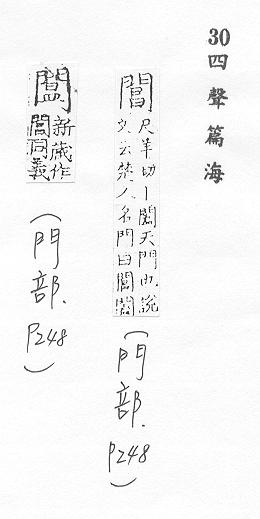 30
四聲篇海
閶
尺羊切丨闔天門也說
文云楚人名門曰閶闔
(門部.P248)
新藏作
閶同義
(門部.P248)